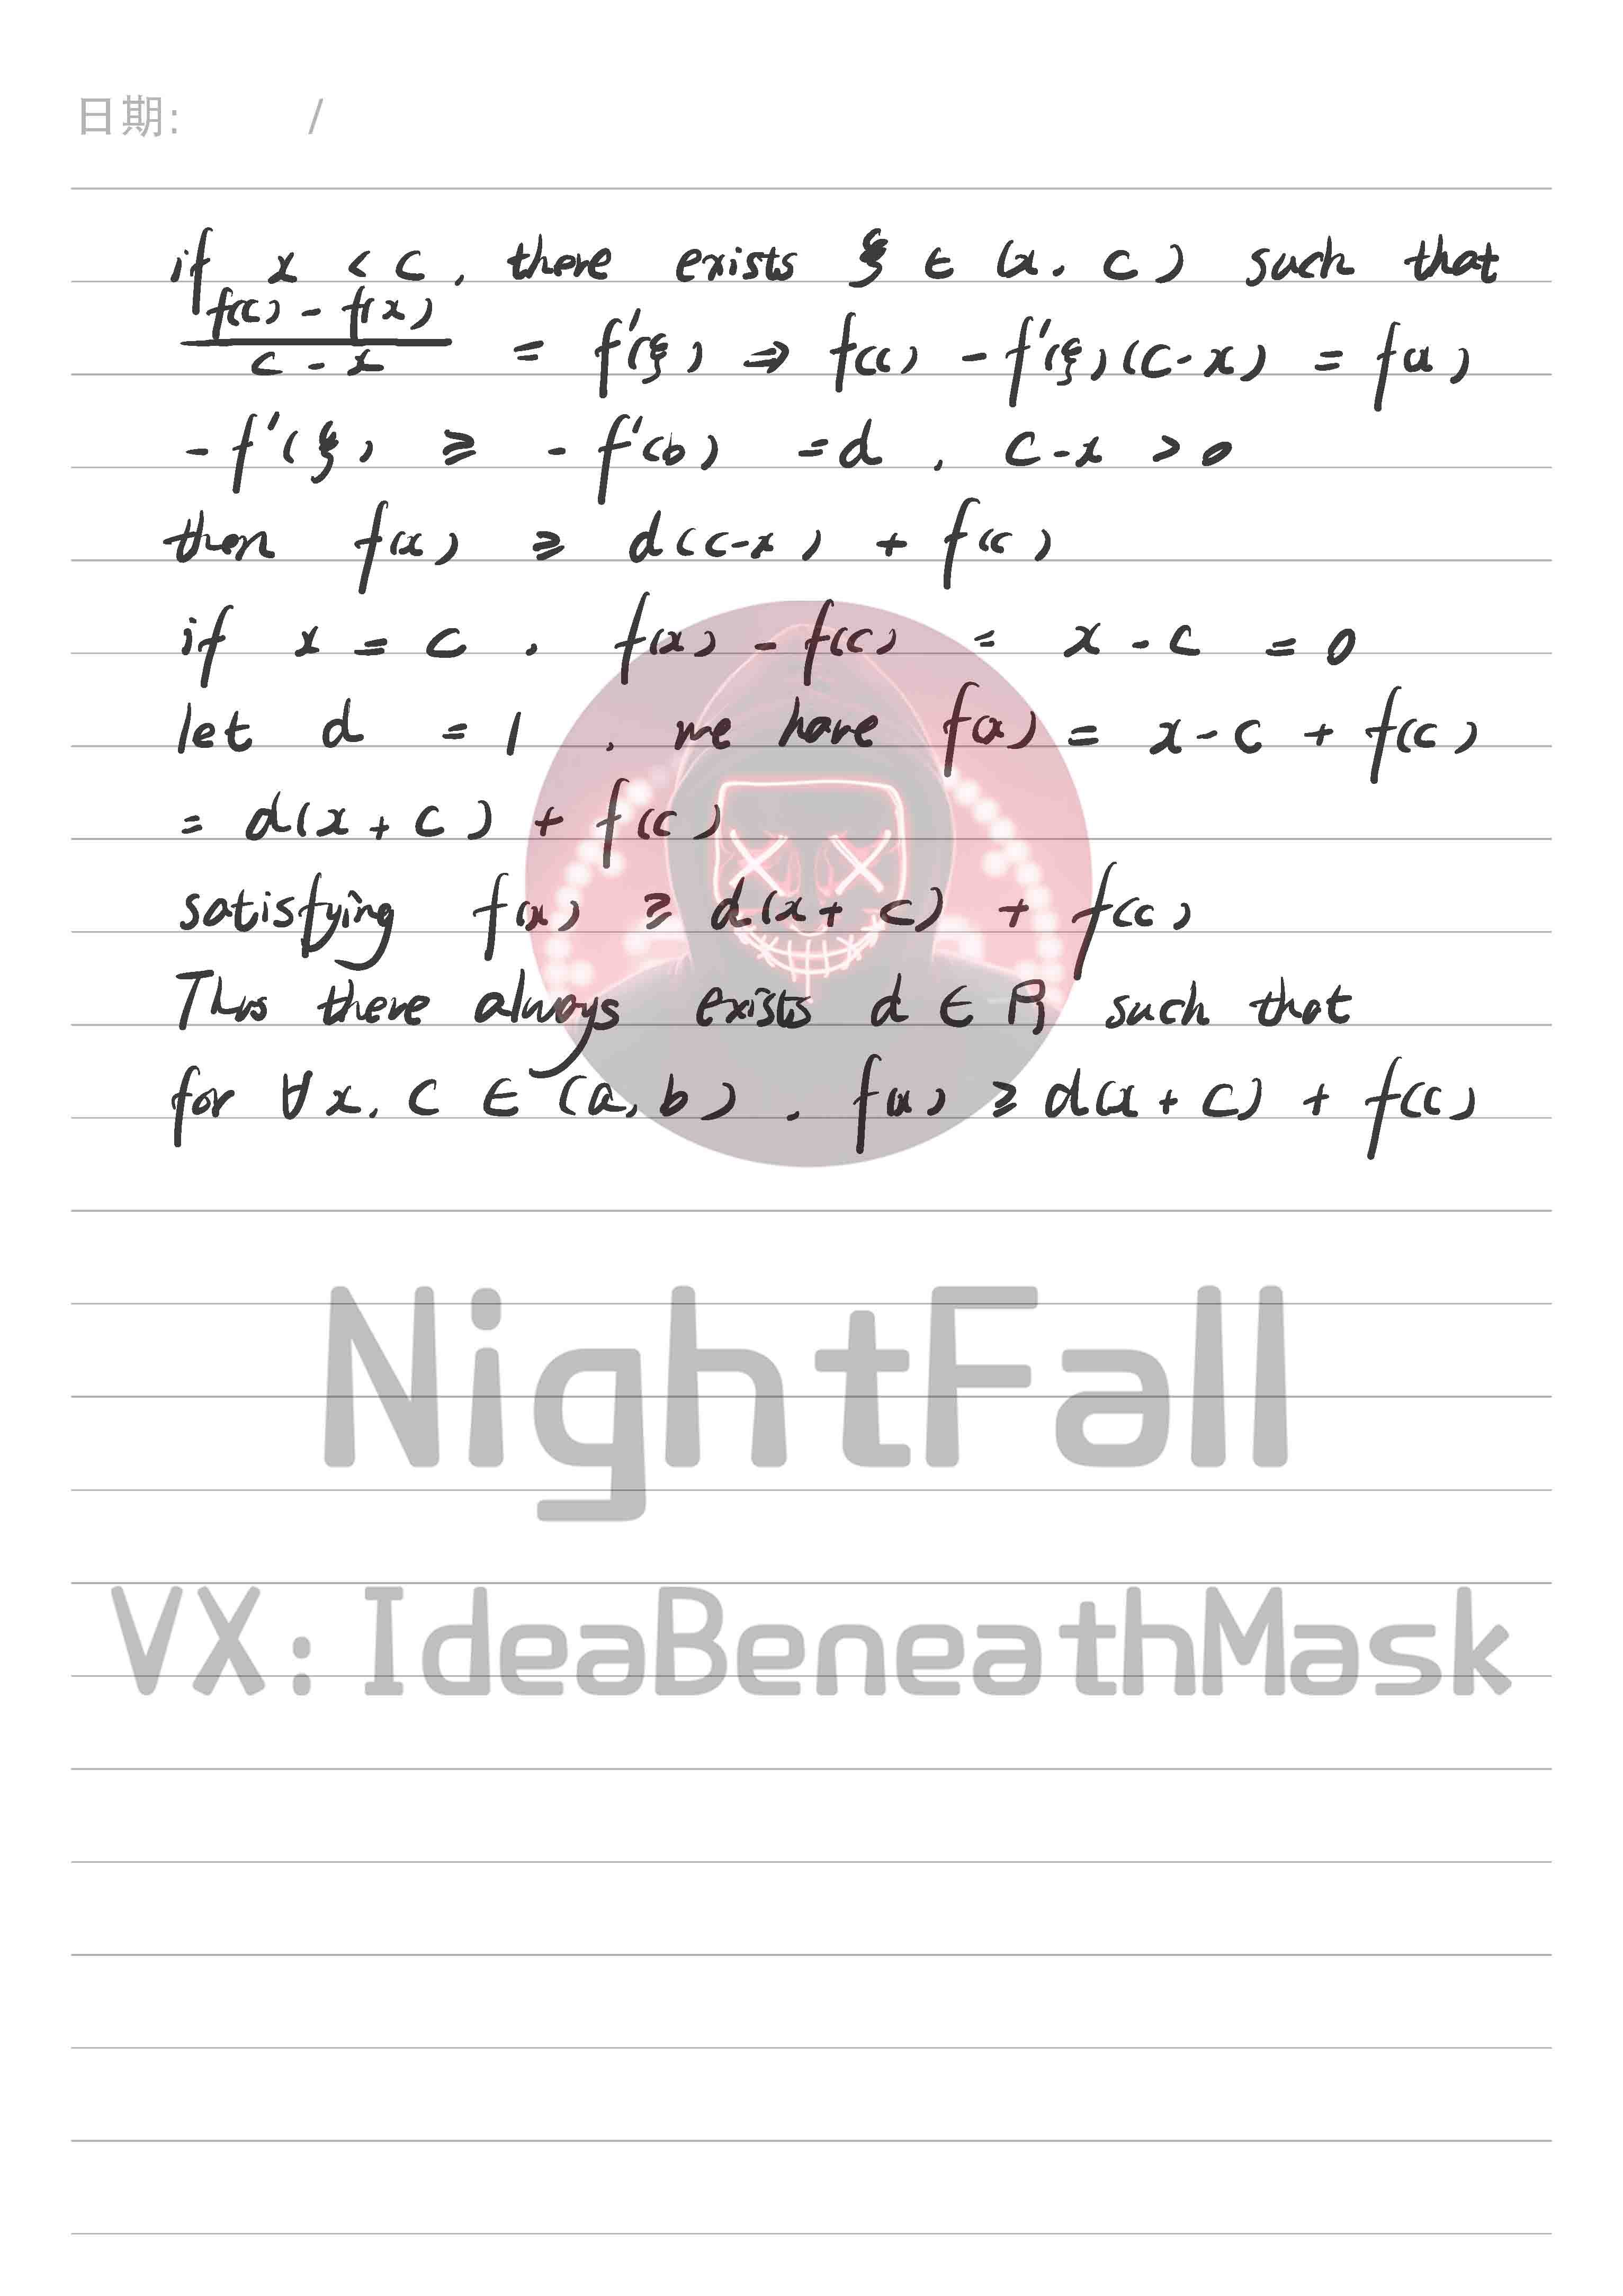 日期: /
if x < c, there exists ξ ∈ (x, c) such that
(f(c) - f(x))/(c - x) = f'(ξ) ⇒ f(c) - f'(ξ)(c-x) = f(x)
-f'(ξ) ≥ -f'(b) = d, c-x > 0
then f(x) ≥ d(c-x) + f(c)
if x = c, f(x) - f(c) = x - c = 0
let d = 1, we have f(x) = x-c + f(c)
= d(x + c) + f(c)
satisfying f(x) ≥ d(x + c) + f(c)
Thus there always exists d ∈ R such that
for ∀x, c ∈ (a, b), f(x) ≥ d(x + c) + f(c)
NightFall
VX: IdeaBeneathMask